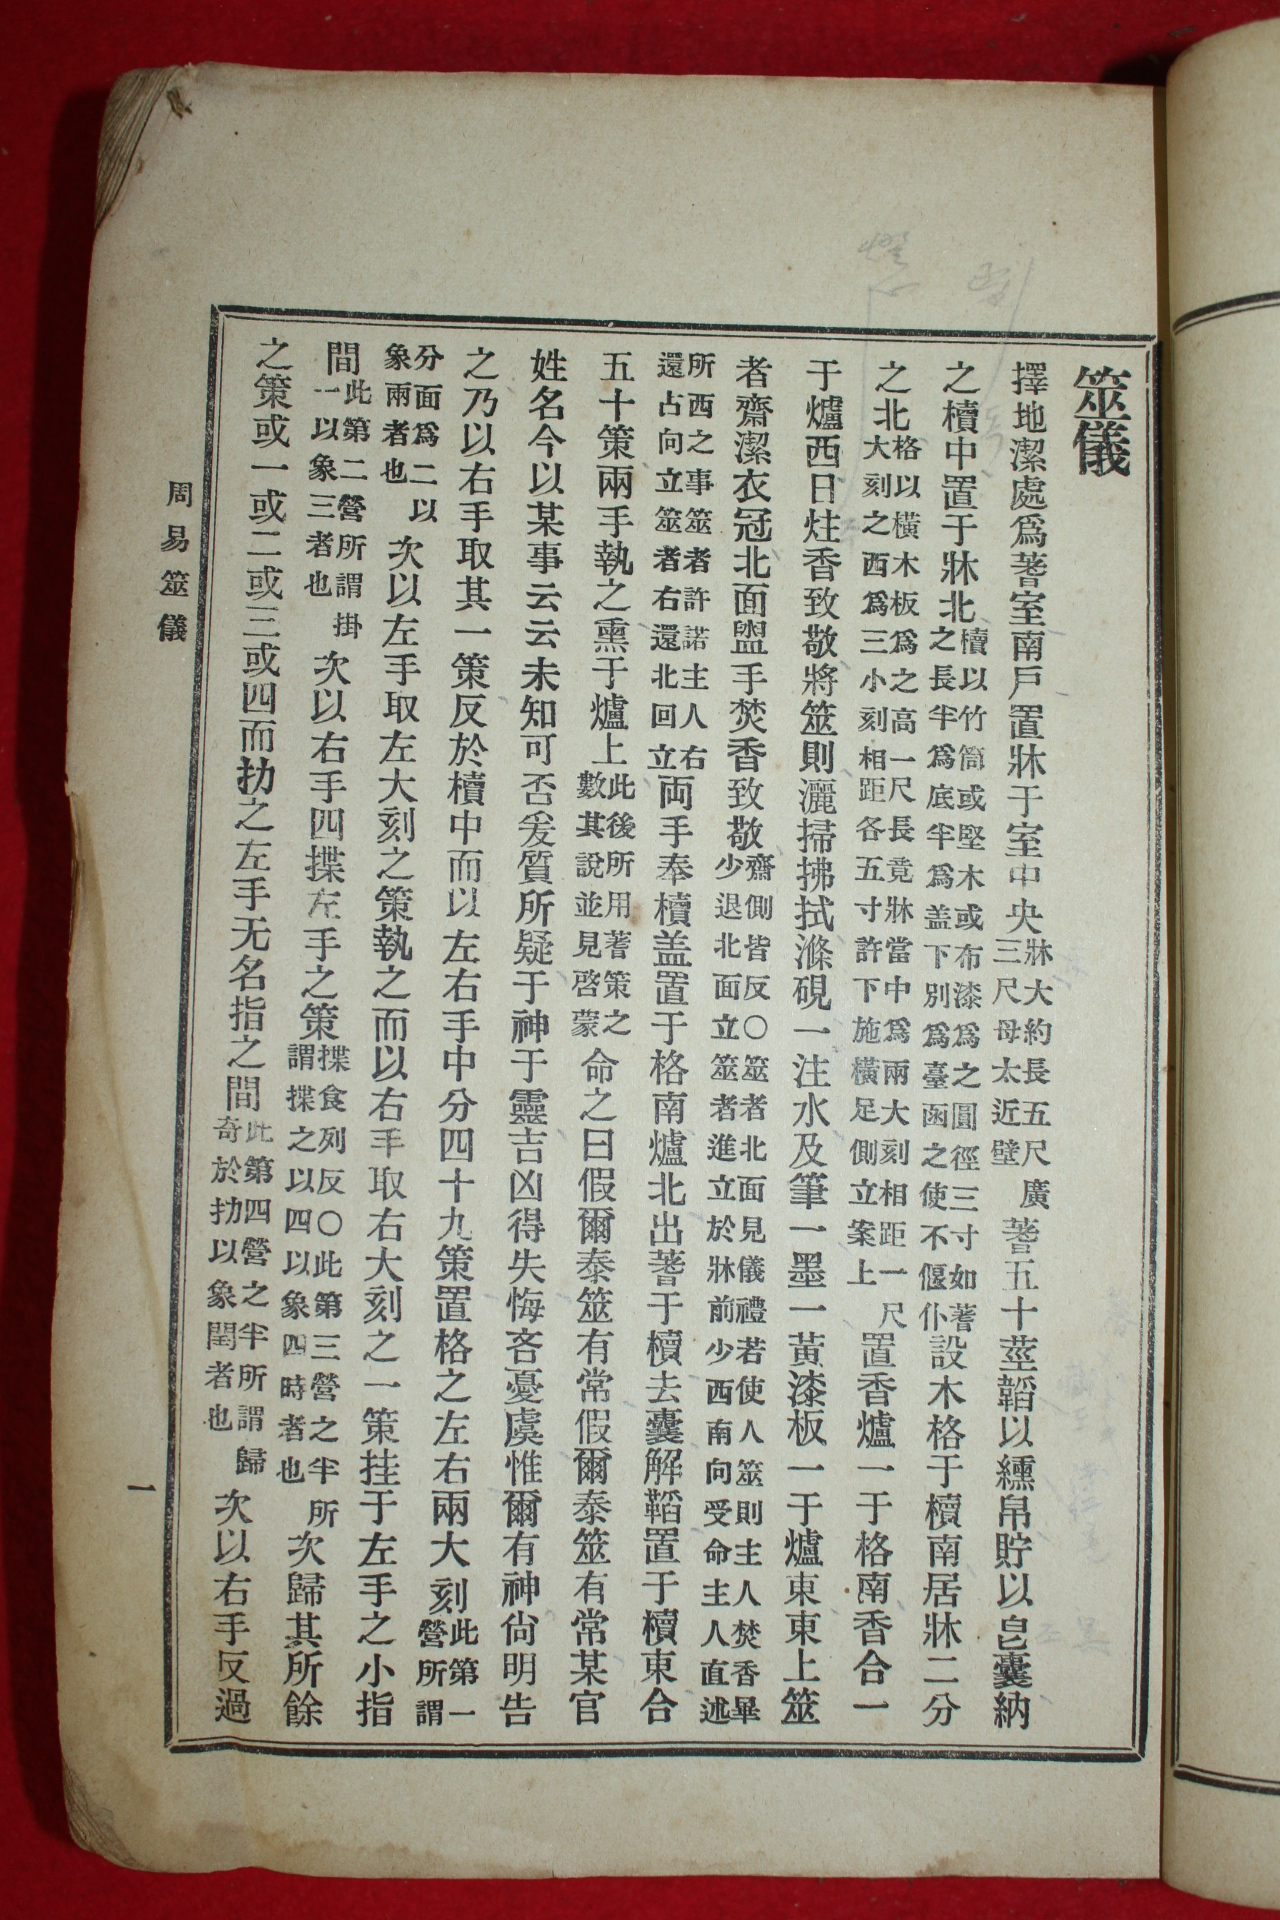 筮儀
擇地潔處爲蓍室南戶置牀于室中央牀大約長五尺廣三尺母太近壁蓍五十莖韜以纁帛貯以皂囊納
之櫝中置于牀北櫝以竹筒或堅木或布漆爲之圓徑三寸如蓍之長半爲底半爲盖下別爲臺函之使不偃仆設木格于櫝南居牀二分
之北格以橫木板爲之高一尺長竟牀當中爲兩大刻相距一尺大刻之西爲三小刻相距各五寸許下施橫足側立案上置香爐一于格南香合一
于爐西日炷香致敬將筮則灑掃拂拭滌硯一注水及筆一墨一黃漆板一于爐東東上筮
者齋潔衣冠北面盥手焚香致敬齋側皆反〇筮者北面見儀禮若使人筮則主人焚香畢少退北面立筮者進立於牀前少西南向受命主人直述
所西之事筮者許諾主人右還占向立筮者右還北回立両手奉櫝盖置于格南爐北出蓍于櫝去囊解韜置于櫝東合
五十策兩手執之熏于爐上此後所用蓍策之數其說並見啓蒙命之曰假爾泰筮有常假爾泰筮有常某官
姓名今以某事云云未知可否爰質所疑于神于靈吉凶得失悔吝憂虞惟爾有神尙明告
之乃以右手取其一策反於櫝中而以左右手中分四十九策置格之左右兩大刻此第一營所謂
分面爲二以象兩者也次以左手取左大刻之策執之而以右手取右大刻之一策挂于左手之小指
間此第二營所謂掛一以象三者也次以右手四揲左手之策揲食列反〇此第三營之半所謂揲之以四以象四時者也次歸其所餘
之策或一或二或三或四而扐之左手无名指之間此第四營之半所謂歸奇於扐以象閏者也次以右手反過
周易筮儀
一